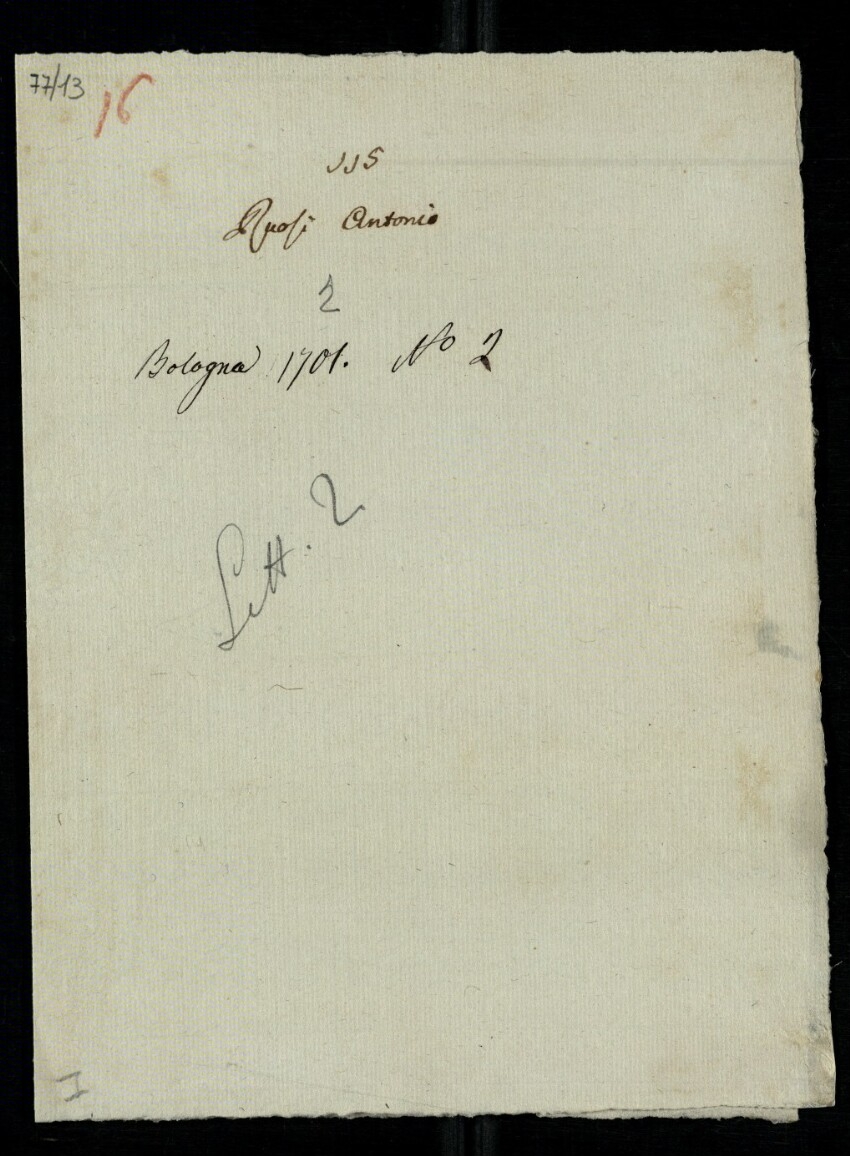 77/13 16
115
Ruosi Antonio
2
Bologna 1701. No 2
Lett. 2
I